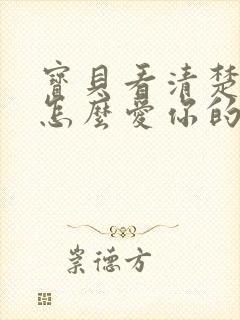 寶貝看清楚
怎麼愛你的
崇德方